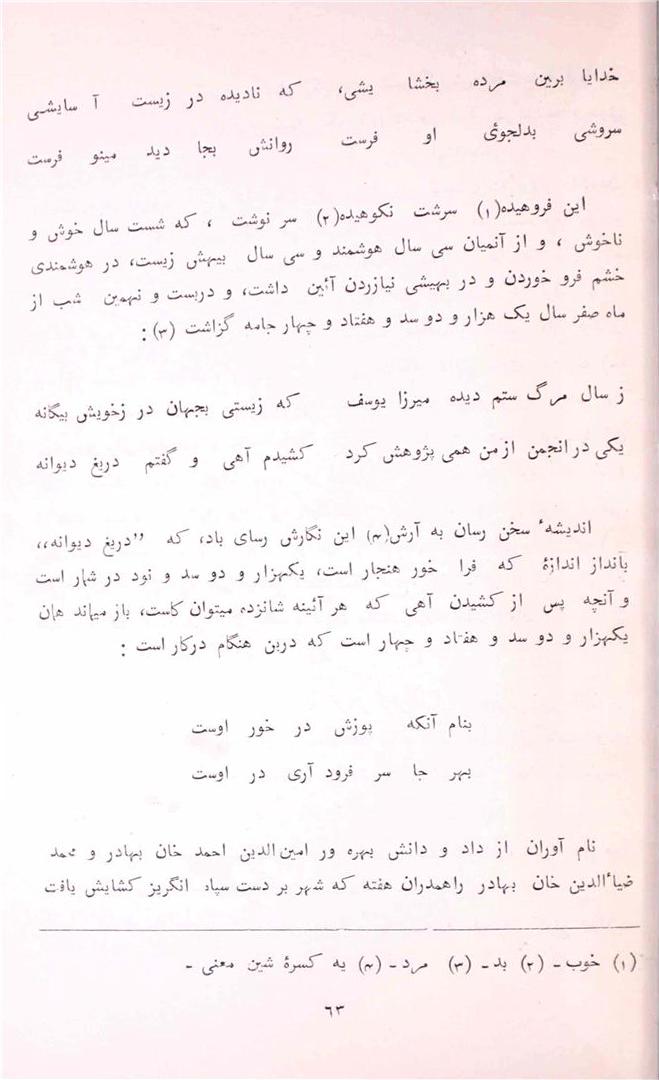 خدایا برین مرده بخشا یشی، که نادیده در زیست آ سایشی
سروشی بدلجوئ او فرست روانش بجا دید مینو فرست
این فروهیده(۱) سرشت نکوهیده(۲) سر نوشت ، که شست سال خوش و
ناخوش ، و از آنمیان سی سال هوشمند و سی سال بیهش زیست، در هوشمندی
خشم فرو خوردن و در بهیشی نیازردن آئین داشت، و دربست و نهمین شب از
ماه صفر سال یک هزار و دو سد و هفتاد و چهار جامه گزاشت (۳) :
ز سال مرگ ستم دیده میرزا یوسف که زیستی بجهان در زخویش بیگانه
یکی در انجمن از من همی پژوهش کرد کشیدم آهی و گفتم دریغ دیوانه
اندیشهٔ سخن رسان به آرش(۴) این نگارش رسای باد، که ”دریغ دیوانه،،
بانداز اندازۂ که فرا خور هنجار است، یکهزار و دو سد و نود در شمار است
و آنچه پس از کشیدن آهی که هر آئینه شانزده میتوان کاست، باز میماند همان
یکهزار و دو سد و هفتاد و چهار است که درین هنگام درکار است :
بنام آنکه پوزش در خور اوست
بهر جا سر فرود آری در اوست
نام آوران از داد و دانش بهره ور امین الدین احمد خان بهادر و محمد
ضیأالدین خان بهادر راهمدران هفته که شهر بر دست سپاه انگریز کشایش یافت
(۱) خوب ـ (۲) بد ـ (۳) مرد ـ (۴) یه کسرۂ شین معنی ـ
۶۳